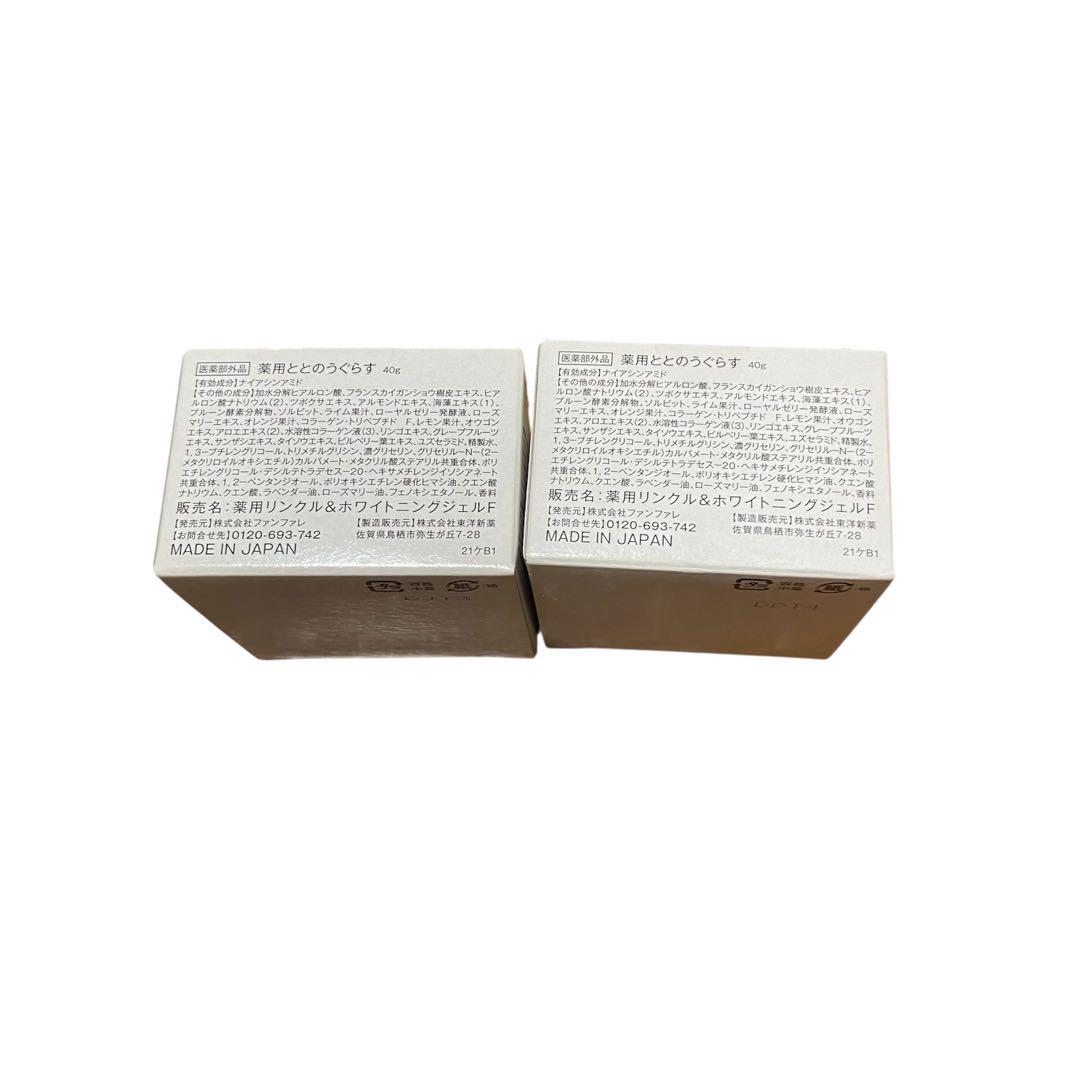 医薬部外品 薬用ととのうぐらす 40g
【有効成分】ナイアシンアミド
【その他の成分】加水分解ヒアルロン酸、フランスカイガンショウ樹皮エキス、ヒア
ルロン酸ナトリウム(2)、ツボクサエキス、アルモンドエキス、海藻エキス(1)、
プルーン酵素分解物、ソルビット、ライム果汁、ローヤルゼリー発酵液、ローズ
マリーエキス、オレンジ果汁、コラーゲン・トリペプチド F、レモン果汁、オウゴン
エキス、アロエエキス(2)、水溶性コラーゲン液(3)、リンゴエキス、グレープフルーツ
エキス、サンザシエキス、タイソウエキス、ビルベリー葉エキス、ユズセラミド、精製水、
1,3-ブチレングリコール、トリメチルグリシン、濃グリセリン、グリセリル-N-(2-
メタクリロイルオキシエチル)カルバメート・メタクリル酸ステアリル共重合体、ポリ
エチレングリコール・デシルテトラデセス-20・ヘキサメチレンジイソシアネート
共重合体、1,2-ペンタンジオール、ポリオキシエチレン硬化ヒマシ油、クエン酸
ナトリウム、クエン酸、ラベンダー油、ローズマリー油、フェノキシエタノール、香料
販売名:薬用リンクル&ホワイトニングジェルF
【発売元】株式会社ファンファレ 【製造販売元】株式会社東洋新薬
【お問合せ先】0120-693-742 佐賀県鳥栖市弥生が丘7-28
MADE IN JAPAN 21ケB1
プラ 容器 中蓋 紙 箱
医薬部外品 薬用ととのうぐらす 40g
【有効成分】ナイアシンアミド
【その他の成分】加水分解ヒアルロン酸、フランスカイガンショウ樹皮エキス、ヒア
ルロン酸ナトリウム(2)、ツボクサエキス、アルモンドエキス、海藻エキス(1)、
プルーン酵素分解物、ソルビット、ライム果汁、ローヤルゼリー発酵液、ローズ
マリーエキス、オレンジ果汁、コラーゲン・トリペプチド F、レモン果汁、オウゴン
エキス、アロエエキス(2)、水溶性コラーゲン液(3)、リンゴエキス、グレープフルーツ
エキス、サンザシエキス、タイソウエキス、ビルベリー葉エキス、ユズセラミド、精製水、
1,3-ブチレングリコール、トリメチルグリシン、濃グリセリン、グリセリル-N-(2-
メタクリロイルオキシエチル)カルバメート・メタクリル酸ステアリル共重合体、ポリ
エチレングリコール・デシルテトラデセス-20・ヘキサメチレンジイソシアネート
共重合体、1,2-ペンタンジオール、ポリオキシエチレン硬化ヒマシ油、クエン酸
ナトリウム、クエン酸、ラベンダー油、ローズマリー油、フェノキシエタノール、香料
販売名:薬用リンクル&ホワイトニングジェルF
【発売元】株式会社ファンファレ 【製造販売元】株式会社東洋新薬
【お問合せ先】0120-693-742 佐賀県鳥栖市弥生が丘7-28
MADE IN JAPAN 21ケB1
プラ 容器 中蓋 紙 箱
DDT4